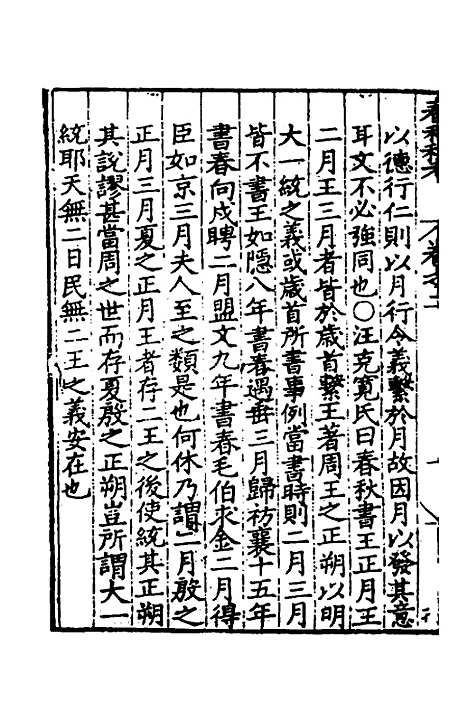 以德行仁則以月行令義繫於月故因月以發其意
耳文不必強同也○汪克寬氏曰春秋書王正月王
二月王三月者皆於歲首繫王著周王之正朔以明
大一統之義或歲首所書事例當書時則二月三月
皆不書王如隱八年書春遇垂三月歸祊襄十五年
書春向戌聘二月盟文九年書春毛伯求金二月得
臣如京三月夫人至之類是也何休乃謂二月殷之
正月三月夏之正月王者存二王之後使統其正朔
其說謬甚當周之世而存夏殷之正朔豈所謂大一
統耶天無二日民無二王之義安在也